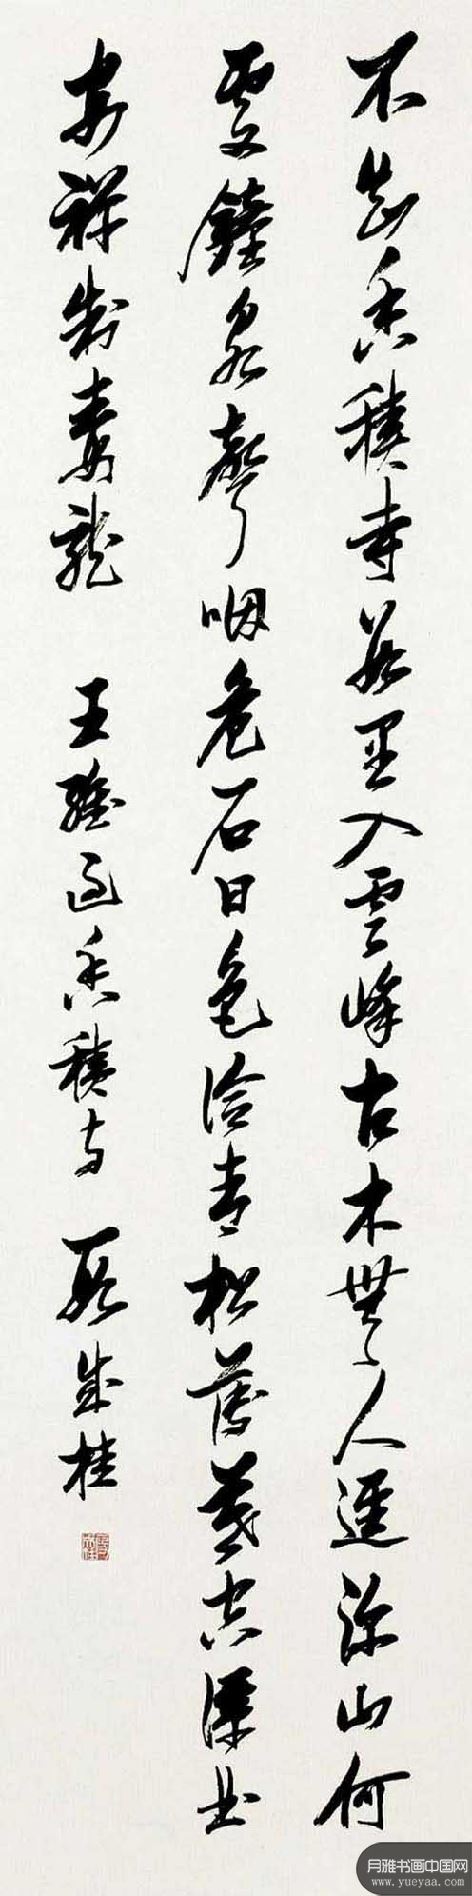 不知香積寺數里入雲峰古木無人逕深山何
處鐘泉聲咽危石日色冷青松薄暮空潭曲
安禪制毒龍 王維過香積寺 段成桂
月雅书画中国网
www.yueyaa.com